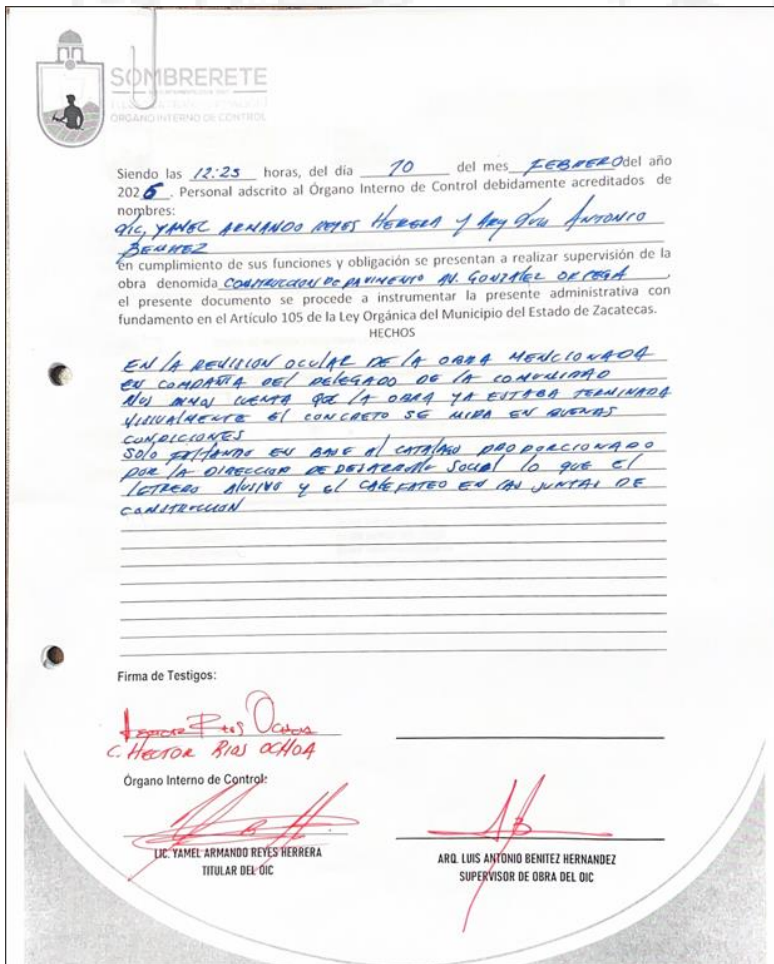 SOMBRERETE
ÓRGANO INTERNO DE CONTROL
Siendo las 12:25 horas, del día 10 del mes FEBRERO del año
2026. Personal adscrito al Órgano Interno de Control debidamente acreditados de
nombres:
LIC, YAMEL ARMANDO REYES HERERA Y ARQ LUIS ANTONIO
BENITEZ
en cumplimiento de sus funciones y obligación se presentan a realizar supervisión de la
obra denomida CONSTRUCCION DE PAVIMENTO AV. GONZALEZ ORTEGA,
el presente documento se procede a instrumentar la presente administrativa con
fundamento en el Artículo 105 de la Ley Orgánica del Municipio del Estado de Zacatecas.
HECHOS
EN LA REVISION OCULAR DE LA OBRA MENCIONADA
EN COMPAÑIA DEL DELEGADO DE LA COMUNIDAD
NOS DIMOS CUENTA QUE LA OBRA YA ESTABA TERMINADA
VISUALMENTE EL CONCRETO SE MIRA EN BUENAS
CONDICIONES
SOLO FALTANDO EN BASE AL CATALAGO PROPORCIONADO
POR LA DIRECCION DE DESARROLLO SOCIAL LO QUE EL
LETRERO ALUSIVO Y EL CALEFATEO EN LAS JUNTAS DE
CONSTRUCCION
Firma de Testigos:
Hector Rios Ochoa
C. HECTOR RIOS OCHOA
Órgano Interno de Control:
LIC. YAMEL ARMANDO REYES HERRERA
TITULAR DEL OIC
ARQ. LUIS ANTONIO BENITEZ HERNANDEZ
SUPERVISOR DE OBRA DEL OIC